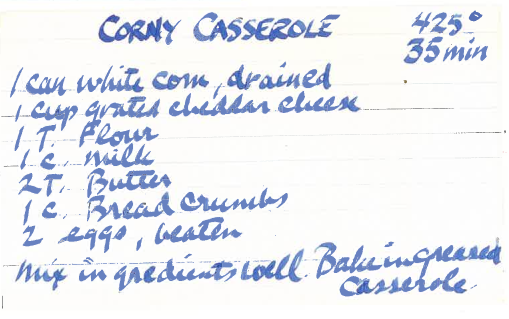 CORNY CASSEROLE 425°
35 min
1 can white corn, drained
1 cup grated cheddar cheese
1 T. Flour
1 c. milk
2 T. Butter
1 c. Bread crumbs
2 eggs, beaten
Mix ingredients well. Bake in greased
Casserole.